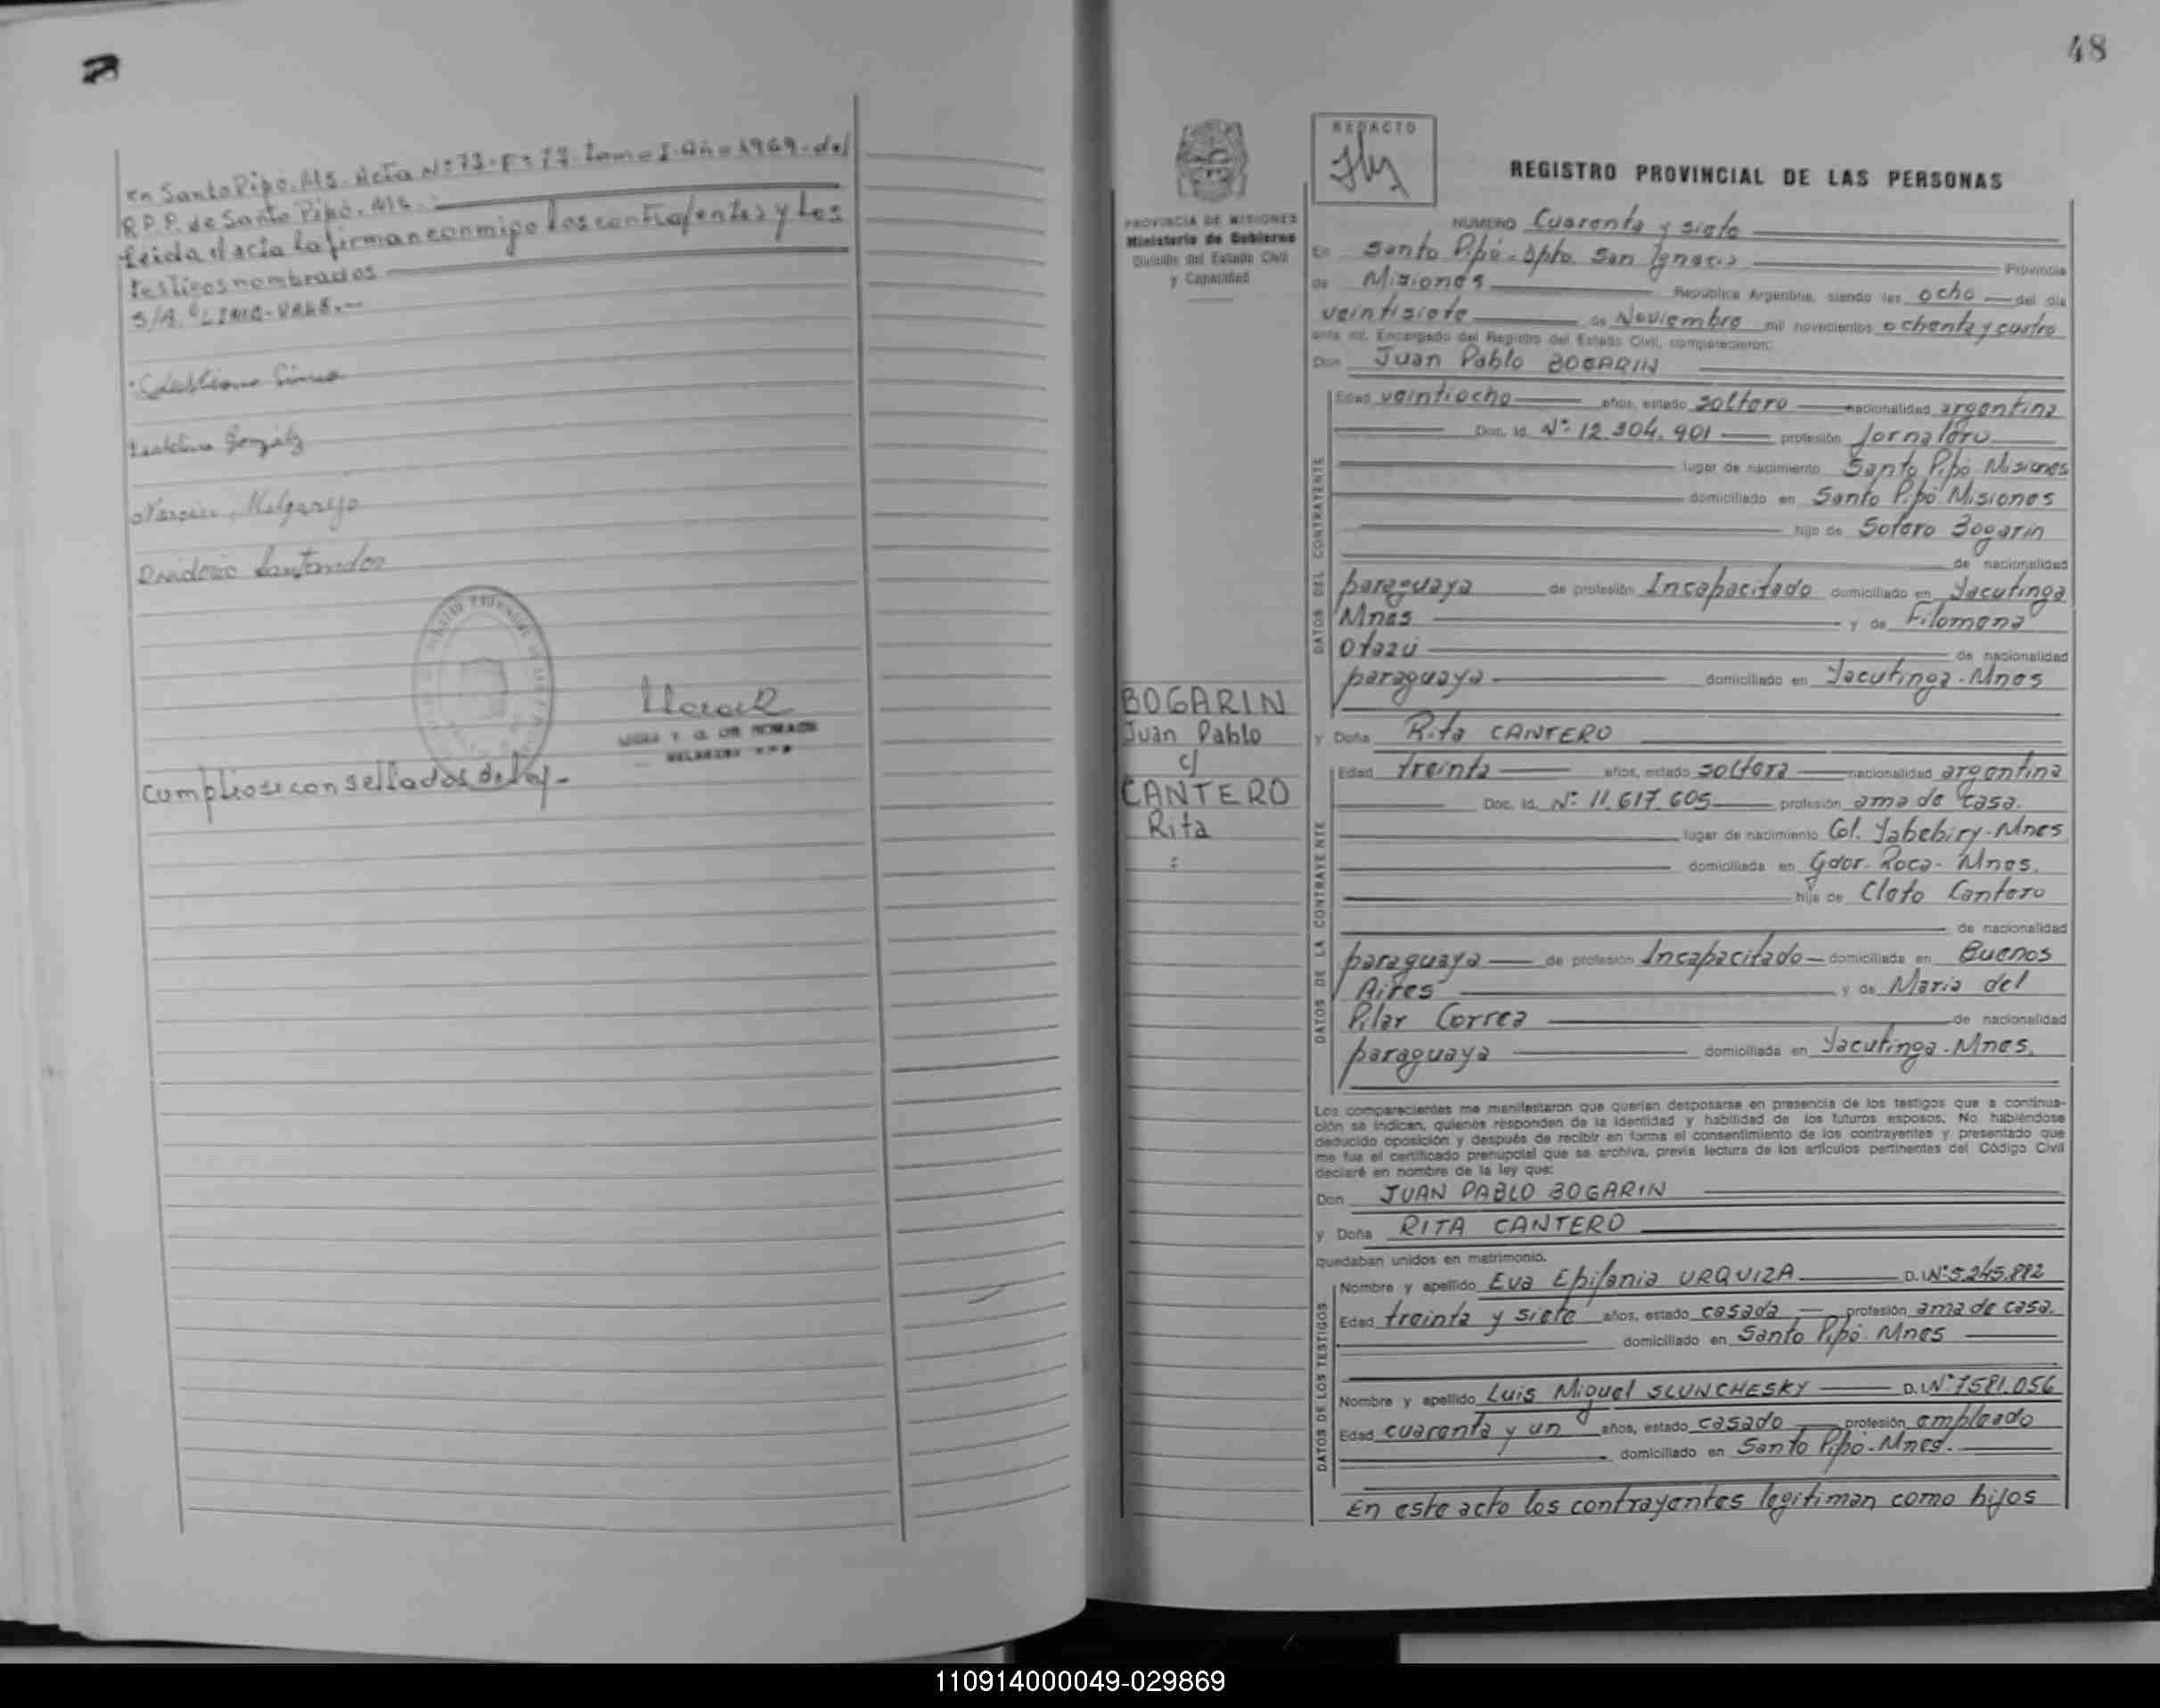 en Santo Pipó. Ms. Acta Nº 73. Fº 17. Tomo I. Año 1969. del
R.P.P. de Santo Pipó. Ms.
Leida el acta la firman conmigo los contrayentes y los
testigos nombrados
S/R. "LIMA-VALE.-
Melgarejo
Cumpliose con sellados de ley.-
48
PROVINCIA DE MISIONES
Ministerio de Gobierno
División del Estado Civil
y Capacidad
BOGARIN
Juan Pablo
c/
CANTERO
Rita
=
REDACTO
REGISTRO PROVINCIAL DE LAS PERSONAS
NUMERO Cuarenta y siete
En Santo Pipó - Dpto. San Ignacio Provincia
de Misiones República Argentina, siendo las ocho del día
veintisiete de Noviembre mil novecientos ochenta y cuatro
ante mí, Encargado del Registro del Estado Civil, comparecieron:
Don Juan Pablo BOGARIN
DATOS DEL CONTRAYENTE
Edad veintiocho años, estado soltero nacionalidad argentina
Doc. Id. Nº 12.304.901 profesión Jornalero
lugar de nacimiento Santo Pipó Misiones
domiciliado en Santo Pipó. Misiones
hijo de Sotero Bogarin
de nacionalidad
paraguaya de profesión Incapacitado domiciliado en Jacutinga
Mnes y de Filomena
Otazú de nacionalidad
paraguaya domiciliado en Jacutinga-Mnes
y Doña Rita CANTERO
DATOS DE LA CONTRAYENTE
Edad treinta años, estado soltera nacionalidad argentina
Doc. Id. Nº 11.617.605 profesión ama de casa.
lugar de nacimiento Col. Yabebiry-Mnes
domiciliada en Gdor. Roca- Mnes.
hija de Cleto Cantero
de nacionalidad
paraguaya de profesión Incapacitado domiciliada en Buenos
Aires y de Maria del
Pilar Correa de nacionalidad
paraguaya domiciliada en Jacutinga-Mnes.
Los comparecientes me manifestaron que querían desposarse en presencia de los testigos que a continua-
ción se indican, quienes responden de la identidad y habilidad de los futuros esposos. No habiéndose
deducido oposición y después de recibir en forma el consentimiento de los contrayentes y presentado que
me fue el certificado prenupcial que se archiva, previa lectura de los artículos pertinentes del Código Civil
declaré en nombre de la ley que:
Don JUAN PABLO BOGARIN
y Doña RITA CANTERO
quedaban unidos en matrimonio.
DATOS DE LOS TESTIGOS
Nombre y apellido Eva Epifania URQUIZA D.I. Nº 5.245.892
Edad treinta y siete años, estado casada profesión ama de casa.
domiciliado en Santo Pipó. Mnes
Nombre y apellido Luis Miguel SLUNCHESKY D.I. Nº 7581.056
Edad cuarenta y un años, estado casado profesión empleado
domiciliado en Santo Pipó-Mnes.
En este acto los contrayentes legitiman como hijos
110914000049-029869